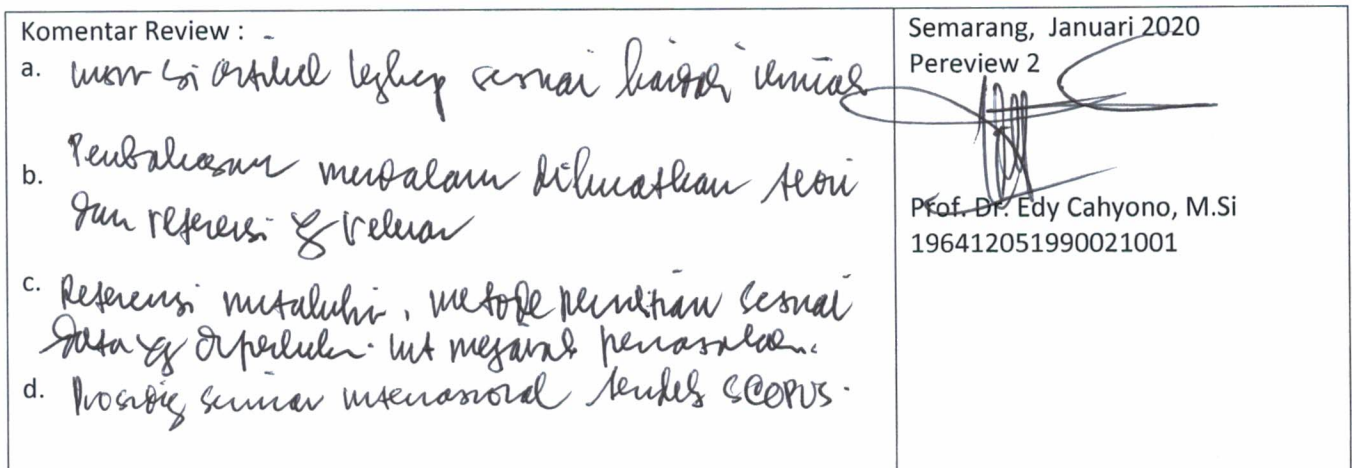 Komentar Review : -
a. unsur isi artikel lengkap sesuai kaidah ilmiah
b. Pembahasan mendalam dikuatkan teori
dan referensi yg relevan
c. Referensi mutakhir, metode penelitian sesuai
data yg diperlukan unt menjawab permasalahan.
d. Prosiding seminar internasional terindeks SCOPUS.
Semarang, Januari 2020
Pereview 2
Prof. Dr. Edy Cahyono, M.Si
196412051990021001